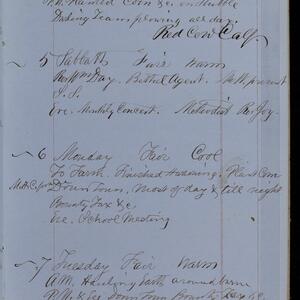 P.M. Planted Corn &c. on Stubble
Team plowing all day.
Red Cow Calf.
5 Sabbath Fair Warm
Rev Mr Day. Bethel Agent. Meth. present
S.S.
Eve. Monthly Concert. Methodist Rev Joy.
6 Monday Fair Cool
To Farm. Finished Harrowing. Plant Corn
Down Town, most of day & till night
Bounty Tax &c
Eve. School Meeting
7 Tuesday Fair Warm
A.M. Hauling earth around barn
P.M. & Eve. Down Town Bounty